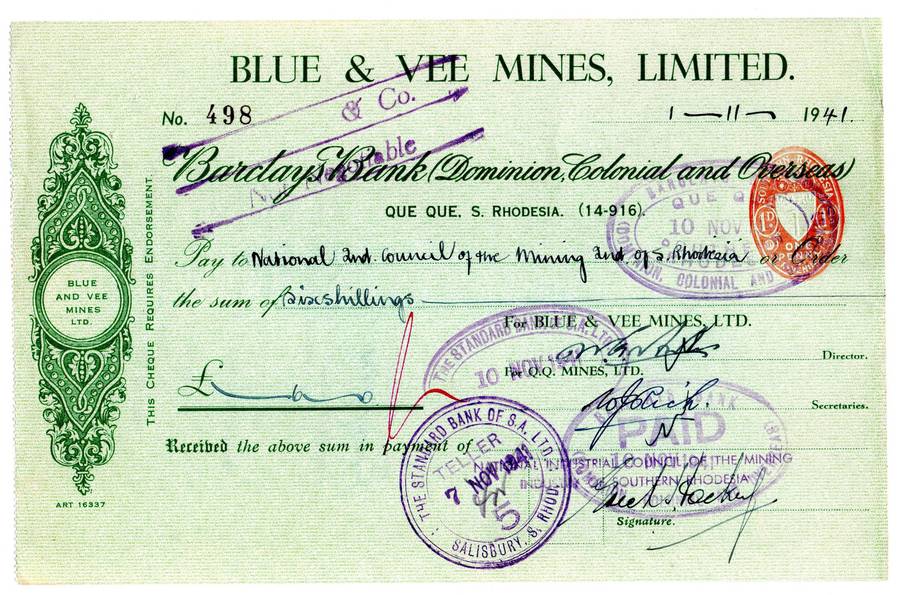 BLUE & VEE MINES, LIMITED.
No. 498
1 — 11 — 1941.
& Co.
Barclays Bank (Dominion, Colonial and Overseas)
QUE QUE, S. RHODESIA. (14-916).
Pay to National Ind. Council of the Mining Ind. of S. Rhodesia or Order
the sum of Six shillings
For BLUE & VEE MINES, LTD.
Director.
For Q.Q. MINES, LTD.
£ — 6 — 0
Secretaries.
Received the above sum in payment of
NATIONAL INDUSTRIAL COUNCIL OF THE MINING
INDUSTRY SOUTHERN RHODESIA
Signature.
BLUE
AND VEE
MINES
LTD.
THIS CHEQUE REQUIRES ENDORSEMENT.
ART 16337
QUE QUE
10 NOV
COLONIAL AND
THE STANDARD BANK OF S.A. LTD.
10 NOV 1941
THE STANDARD BANK OF S.A. LTD.
TELLER
7 NOV 1941
SALISBURY, S. RHOD.
PAID